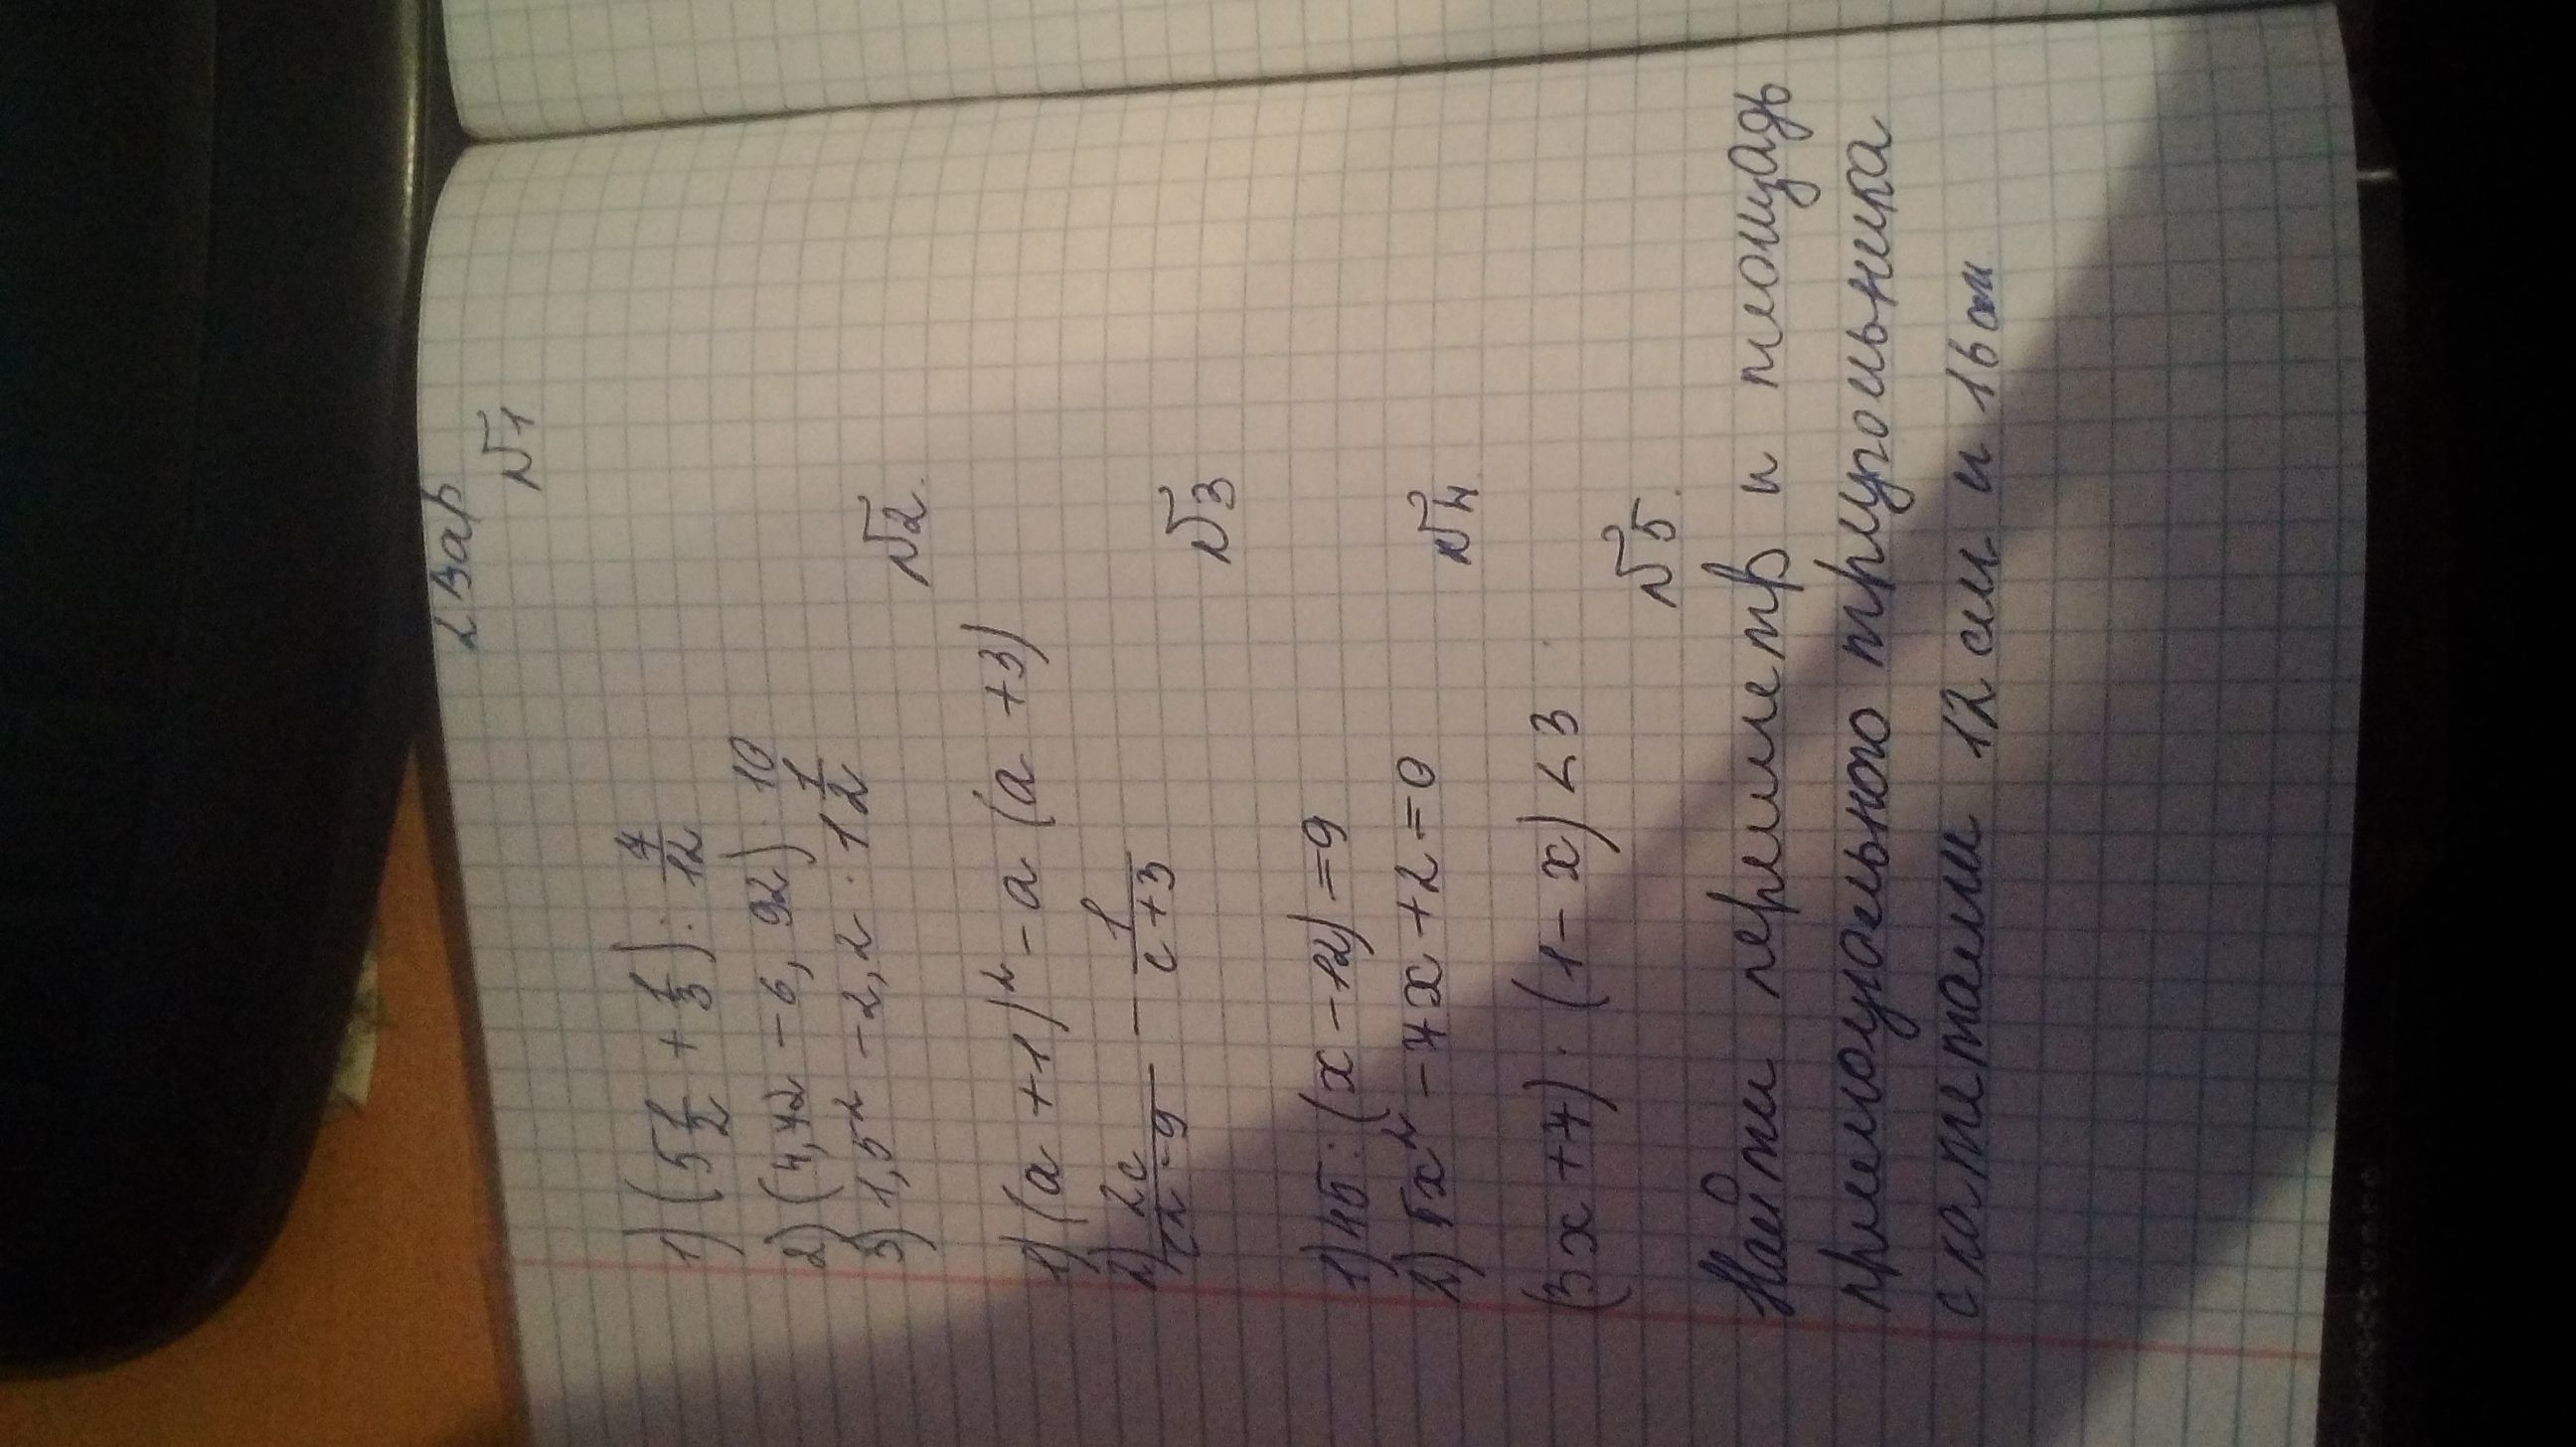 2 Вар
№1
1) (5 1/2 + 1/3) : 7/12
2) (4,42 - 6,92) · 10
3) 1,5² - 2,2 · 1 1/2
№2.
1) (a + 1)² - a (a + 3)
2) 2c/c² - 9 - 1/c + 3
№3
1) 45 : (x - 12) = 9
2) 5x² - 7x + 2 = 0
№4
(3x + 7) · (1 - x) < 3
№5.
Найти периметр и площадь
прямоугольного треугольника
с катетами 12 см и 16 см